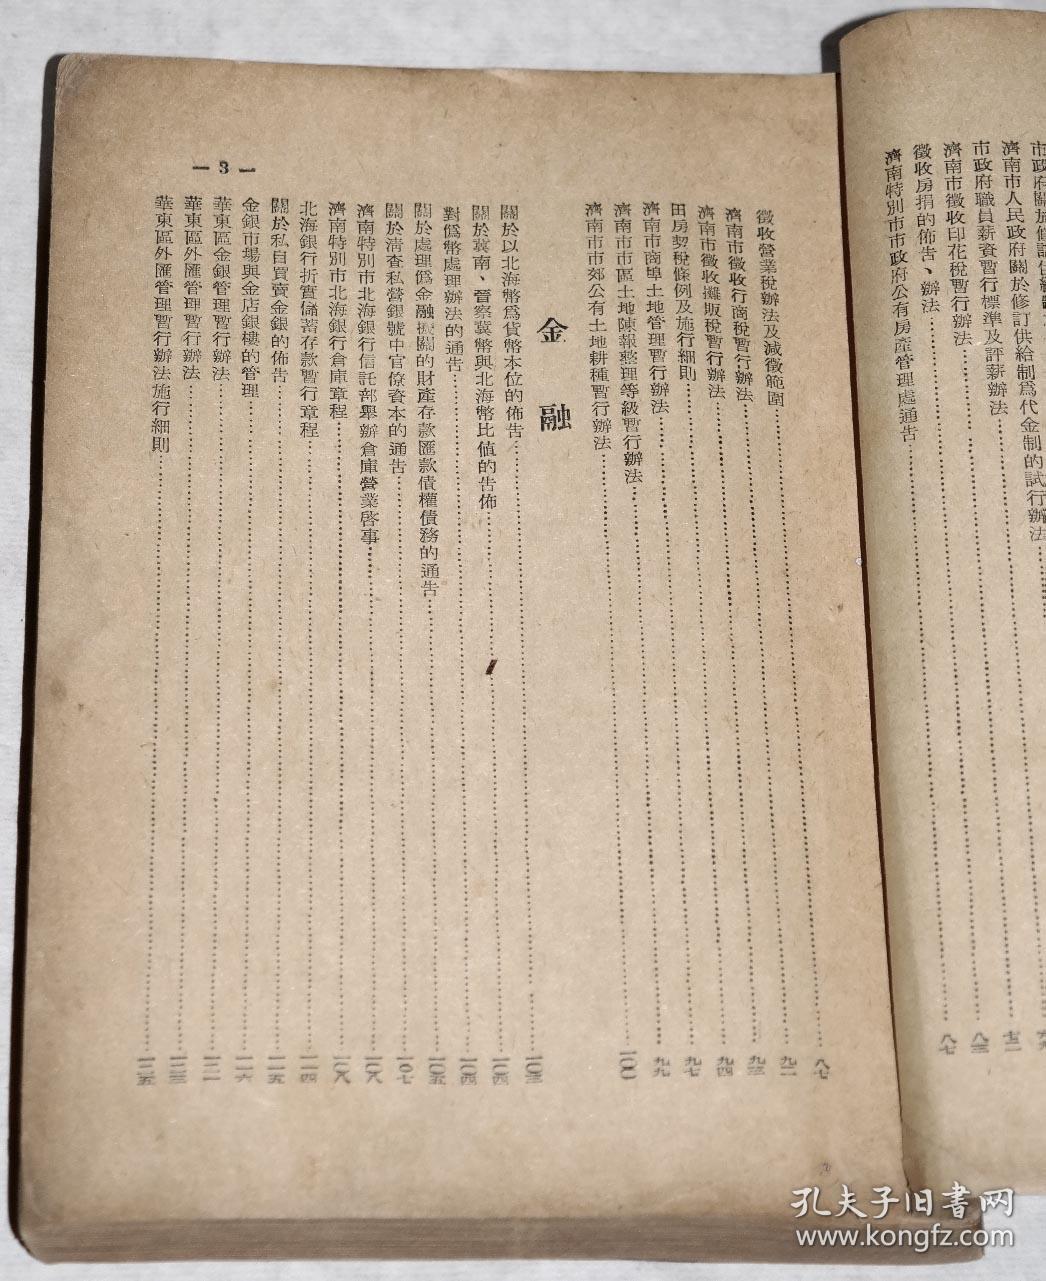 市政府關於修訂供給
濟南市人民政府關於修訂供給制爲代金制的試行辦法
市政府職員薪資暫行標準及評薪辦法……七二
濟南市徵收印花稅暫行辦法……八三
徵收房捐的佈告、辦法……八七
濟南特別市市政府公有房產管理處通告
— 3 —
徵收營業稅辦法及減徵範圍……八七
濟南市徵收行商稅暫行辦法……九二
濟南市徵收攤販稅暫行辦法……九三
田房契稅條例及施行細則……九四
濟南市商埠土地管理暫行辦法……九七
濟南市市區土地陳報整理等級暫行辦法……九九
濟南市市郊公有土地耕種暫行辦法……一〇一
金融
關於以北海幣爲貨幣本位的佈告……一〇三
關於冀南、晉察冀幣與北海幣比値的告佈……一〇四
對僞幣處理辦法的通告……一〇四
關於處理僞金融機關的財產存款匯款債權債務的通告……一〇五
關於清査私營銀號中官僚資本的通告……一〇七
濟南特別市北海銀行信託部舉辦倉庫營業啓事……一〇八
濟南特別市北海銀行倉庫章程……一〇八
北海銀行折實儲蓄存款暫行章程……一一四
關於私自買賣金銀的佈告……一一五
金銀市場與金店銀樓的管理……一一六
華東區金銀管理暫行辦法……一二一
華東區外匯管理暫行辦法……一二三
華東區外匯管理暫行辦法施行細則……一二五
孔夫子旧書网
www.kongfz.com